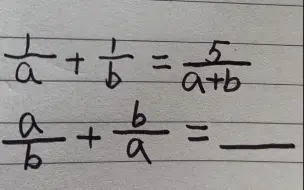 1/a + 1/b = 5/(a+b)
a/b + b/a = ____